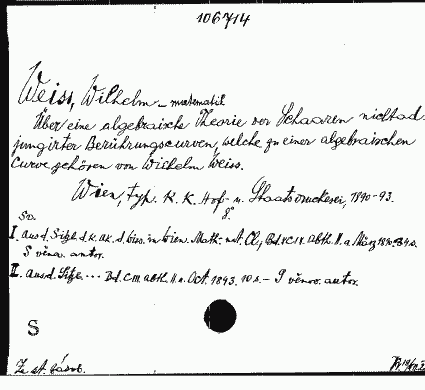 106714
Weiss, Wilhelm - matematik
Über eine algebraische Theorie der Schaaren nichtad-
jungirter Berührungscurven, welche zu einer algebraischen
Curve gehören von Wilhelm Weiss.
Wien, typ. K. K. Hof- u. Staatsdruckerei, 1890-93.
8°
Sv.
I. aus d. Sitzb. d. k. ak. d. Wiss. in Wien. Math.-nat. Cl., Bd. XCIX. Abth. II. a März 1890.
S věnov. autor.
II. aus d. Sitzb. ... Bd. CII. Abth. II. a. Oct. 1893. 10 s. - S věnov. autor.
S
Ze st. fásob.